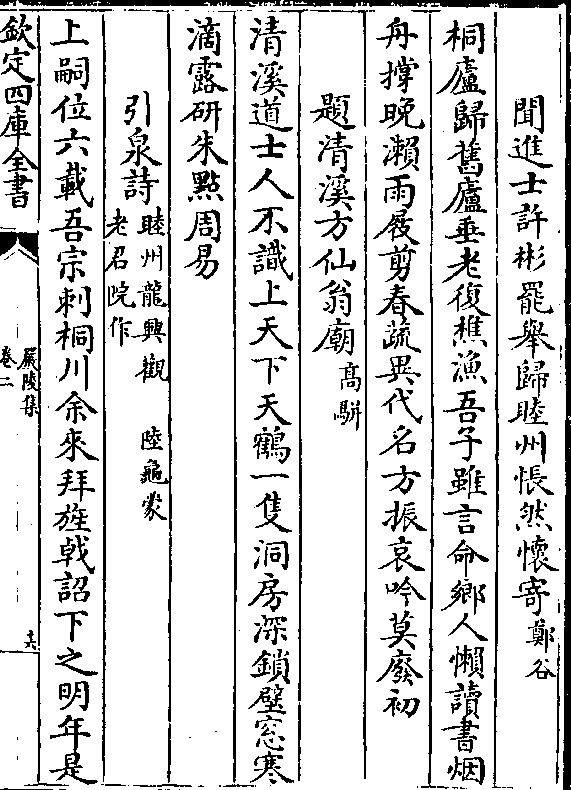 聞進士許彬罷舉歸睦州悵然懷寄鄭谷
桐廬歸舊廬垂老復樵漁吾子雖言命鄉人懶讀書烟
舟撑晚瀨雨屐剪春蔬異代名方振哀吟莫廢初
題清溪方仙翁廟高駢
清溪道士人不識上天下天鶴一隻洞房深鎖壁窓寒
滴露研朱點周易
引泉詩睦州龍興觀老君院作 陸龜蒙
上嗣位六載吾宗刺桐川余來拜旌戟詔下之明年是
欽定四庫全書
嚴陵集
卷二
十六